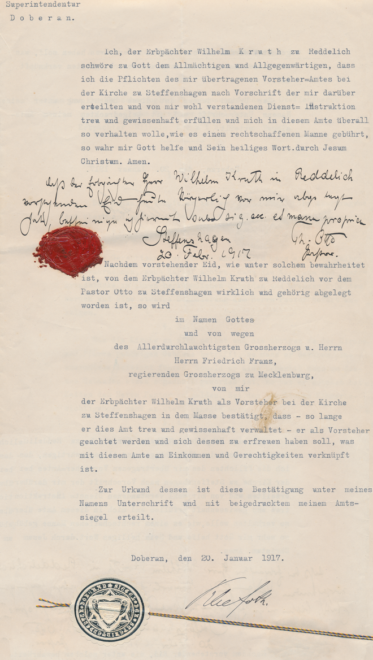 Superintendentur
Doberan.
Ich, der Erbpächter Wilhelm Krath zu Reddelich
schwöre zu Gott dem Allmächtigen und Allgegenwärtigen, dass
ich die Pflichten des mir übertragenen Vorsteher-Amtes bei
der Kirche zu Steffenshagen nach Vorschrift der mir darüber
erteilten und von mir wohl verstandenen Dienst-Instruktion
treu und gewissenhaft erfüllen und mich in diesem Amte überall
so verhalten wolle, wie es einem rechtschaffenen Manne gebührt,
so wahr mir Gott helfe und Sein heiliges Wort durch Jesum
Christum. Amen.
Daß der Erbpächter Herr Wilhelm Krath in Reddelich
vorstehenden Eid körperlich vor mir abge
manu propria
Steffenshagen
20. Febr. 1917 Otto
Pastor.
Nachdem vorstehender Eid, wie unter solchem bewahrheitet
ist, von dem Erbpächter Wilhelm Krath zu Reddelich vor dem
Pastor Otto zu Steffenshagen wirklich und gehörig abgelegt
worden ist, so wird
in Namen Gottes
und von wegen
des Allerdurchlauchtigsten Grossherzogs u. Herrn
Herrn Friedrich Franz,
regierenden Grossherzogs zu Mecklenburg,
von mir
der Erbpächter Wilhelm Krath als Vorsteher bei der Kirche
zu Steffenshagen in dem Masse bestätigt, dass - so lange
er dies Amt treu und gewissenhaft verwaltet - er als Vorsteher
geachtet werden und sich dessen zu erfreuen haben soll, was
mit diesem Amte an Einkommen und Gerechtigkeiten verknüpft
ist.
Zur Urkund dessen ist diese Bestätigung unter meines
Namens Unterschrift und mit beigedruckten meinem Amts-
siegel erteilt.
Doberan, den 20. Januar 1917.